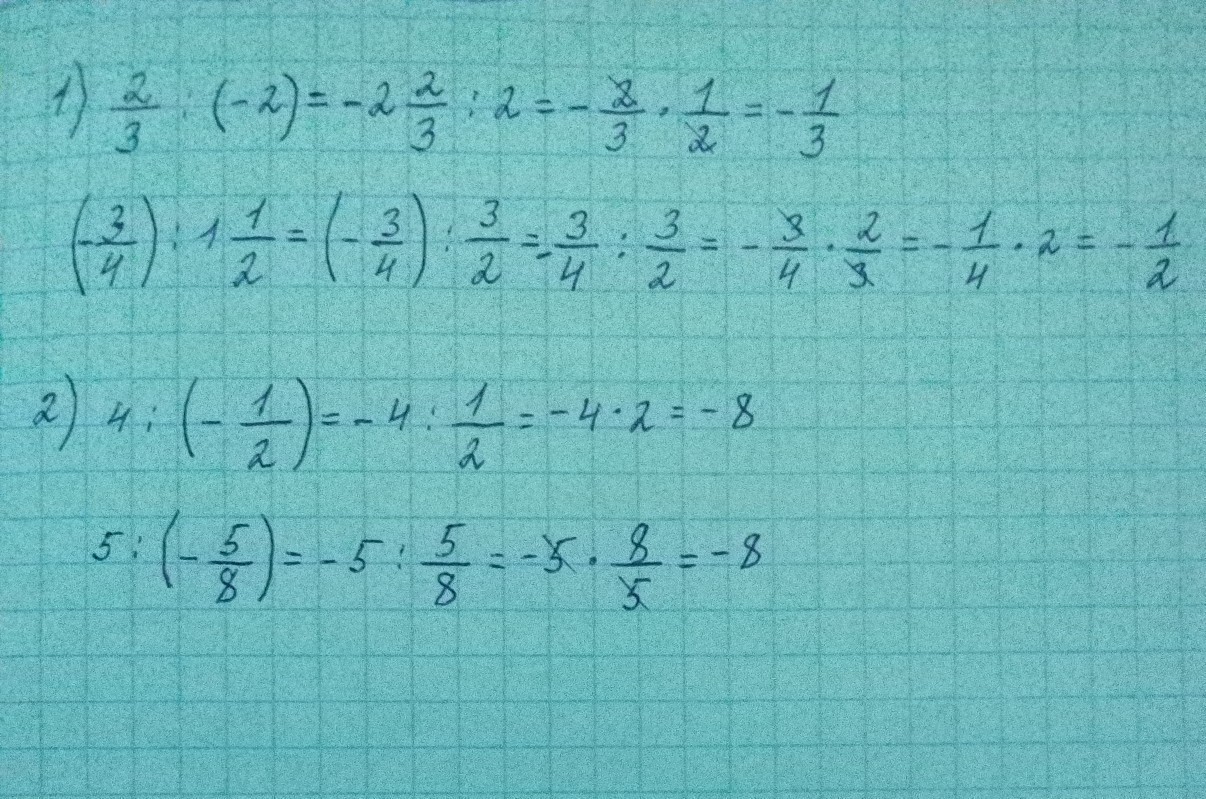 1) 2/3 : (-2) = -2 2/3 : 2 = - 2/3 · 1/2 = - 1/3
(- 3/4) : 1 1/2 = (- 3/4) : 3/2 = - 3/4 : 3/2 = - 3/4 · 2/3 = - 1/4 · 2 = - 1/2
2) 4 : (- 1/2) = - 4 : 1/2 = - 4 · 2 = - 8
5 : (- 5/8) = - 5 : 5/8 = - 5 · 8/5 = - 8